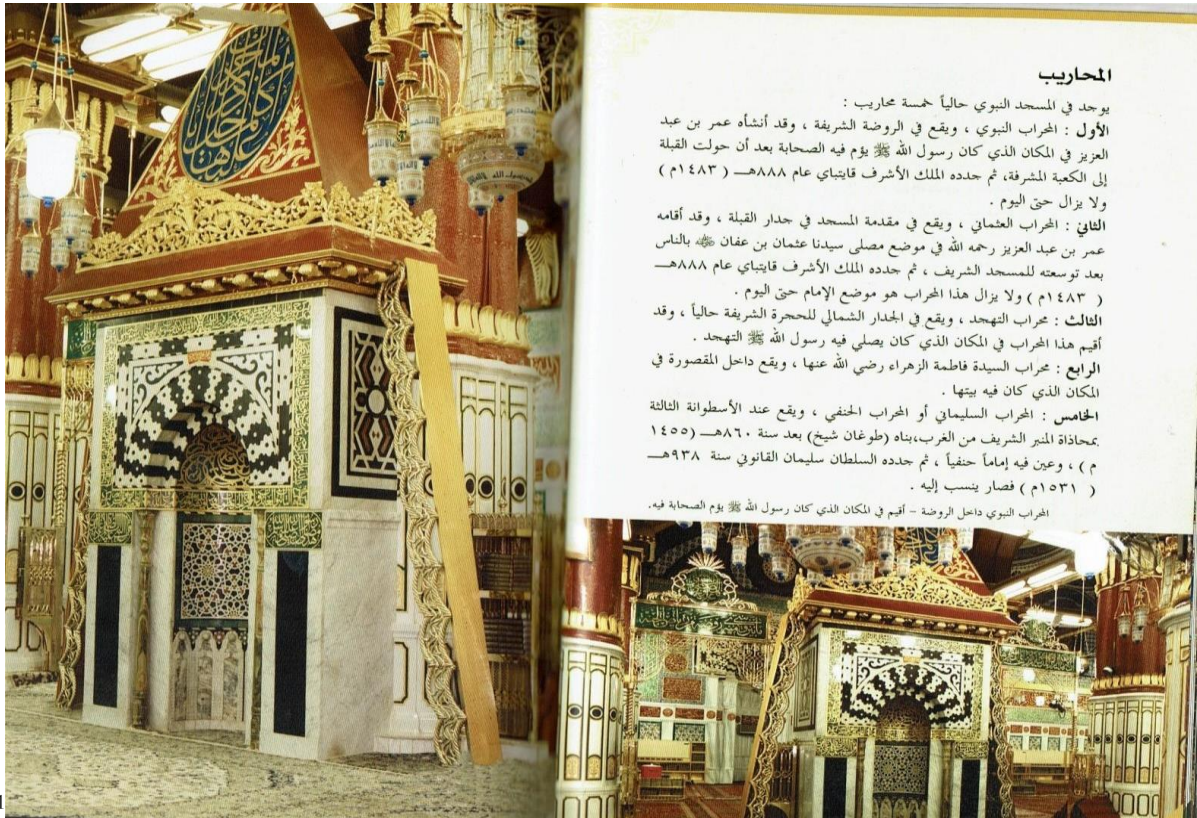 المحاريب
يوجد في المسجد النبوي حالياً خمسة محاريب :
الأول : المحراب النبوي ، ويقع في الروضة الشريفة ، وقد أنشأه عمر بن عبد
العزيز في المكان الذي كان رسول الله ﷺ يؤم فيه الصحابة بعد أن حولت القبلة
إلى الكعبة المشرفة، ثم جدده الملك الأشرف قايتباي عام ٨٨٨هــ ( ١٤٨٣م )
ولا يزال حتى اليوم .
الثاني : المحراب العثماني ، ويقع في مقدمة المسجد في جدار القبلة ، وقد أقامه
عمر بن عبد العزيز رحمه الله في موضع مصلى سيدنا عثمان بن عفان ﷺ بالناس
بعد توسعته للمسجد الشريف ، ثم جدده الملك الأشرف قايتباي عام ٨٨٨هــ
( ١٤٨٣م ) ولا يزال هذا المحراب هو موضع الإمام حتى اليوم .
الثالث : محراب التهجد ، ويقع في الجدار الشمالي للحجرة الشريفة حالياً ، وقد
أقيم هذا المحراب في المكان الذي كان يصلي فيه رسول الله ﷺ التهجد .
الرابع : محراب السيدة فاطمة الزهراء رضي الله عنها ، ويقع داخل المقصورة في
المكان الذي كان فيه بيتها .
الخامس : المحراب السليماني أو المحراب الحنفي ، ويقع عند الأسطوانة الثالثة
بمحاذاة المنبر الشريف من الغرب،بناه (طوغان شيخ) بعد سنة ٨٦٠هــ (١٤٥٥
م) ، وعين فيه إماماً حنفياً ، ثم جدده السلطان سليمان القانوني سنة ٩٣٨هــ
( ١٥٣١م ) فصار ينسب إليه .
المحراب النبوي داخل الروضة – أقيم في المكان الذي كان رسول الله ﷺ يؤم الصحابة فيه.